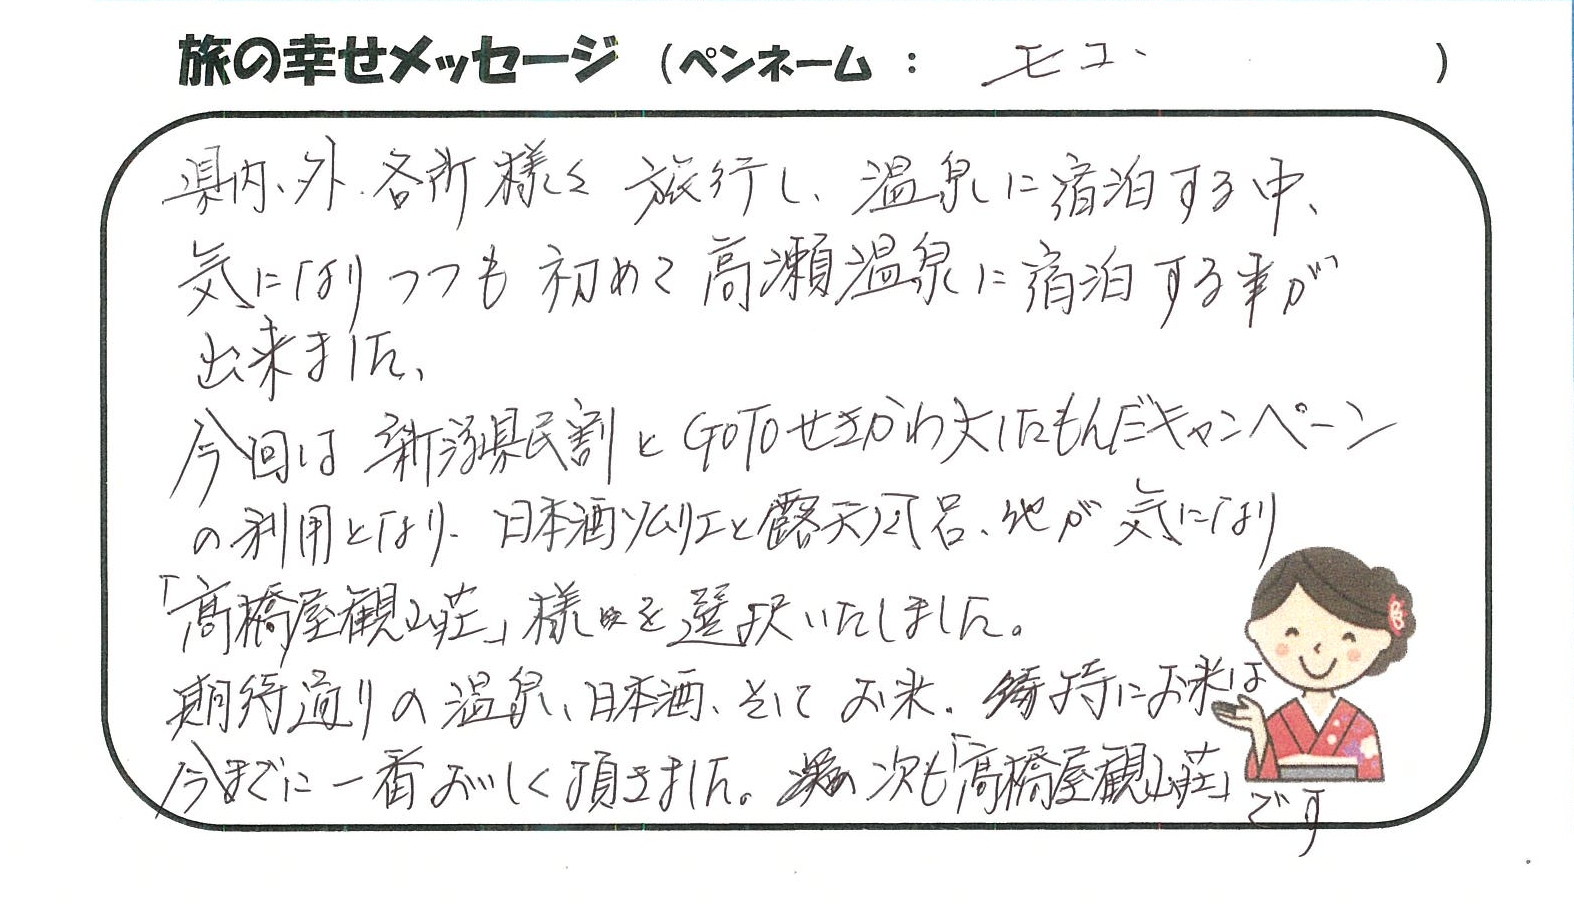 旅の幸せメッセージ (ペンネーム : モコ )
県内、外、各所様々旅行し、温泉に宿泊する中、
気になりつつも初めて高瀬温泉に宿泊する事が
出来ました、
今回は新潟県民割とGOTOせきかわ大したもんだキャンペーン
の利用となり、日本酒ソムリエと露天風呂、他が気になり
「高橋屋観山荘」様を選択いたしました。
期待通りの温泉、日本酒、そしてお米。特にお米は
今までに一番おいしく頂きました。次も「高橋屋観山荘」
です